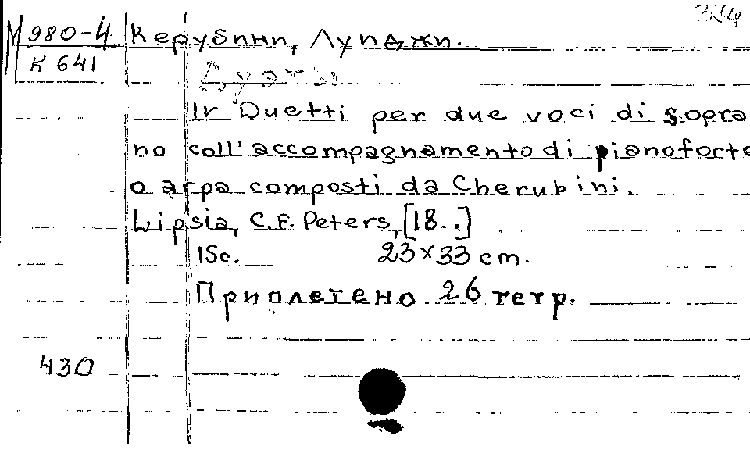 М 980-4
К 641
Керубини, Луиджи.
Дуэты
Ir Duetti per due voci di sopra
no coll' accompagnamento di pianoforte
o arpa composti da Cherubini.
Lipsia, C.F. Peters, [18..]
15c. 23×33 cm.
Приплетено 26 тетр.
430